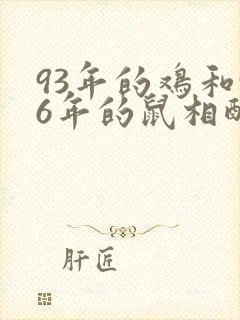 93年的鸡和
6年的鼠相
肝匠